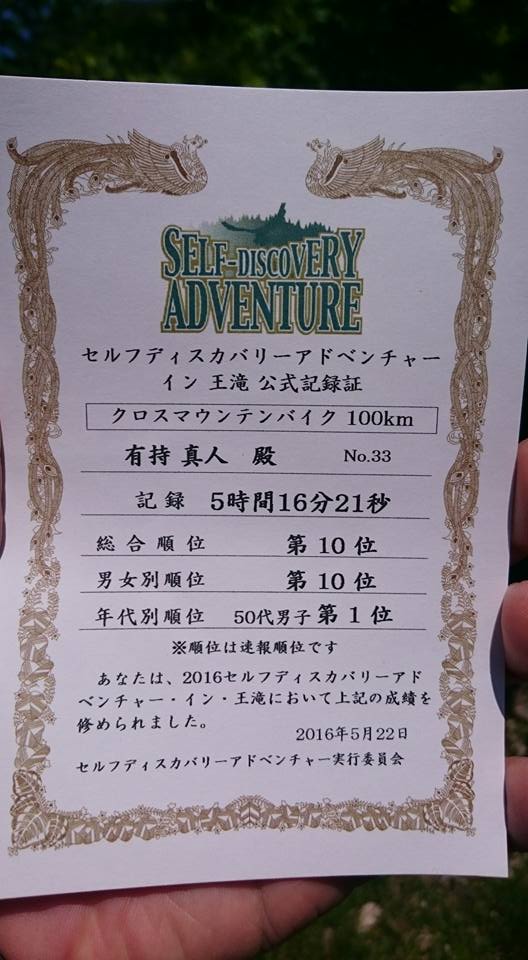 SELF-DISCOVERY
ADVENTURE
セルフディスカバリーアドベンチャー
イン 王滝 公式記録証
クロスマウンテンバイク 100km
有持 真人 殿 No.33
記録 5時間16分21秒
総合順位 第 10 位
男女別順位 第 10 位
年代別順位 50代男子 第 1 位
※順位は速報順位です
あなたは、2016セルフディスカバリーアド
ベンチャー・イン・王滝において上記の成績を
修められました。
2016年5月22日
セルフディスカバリーアドベンチャー実行委員会